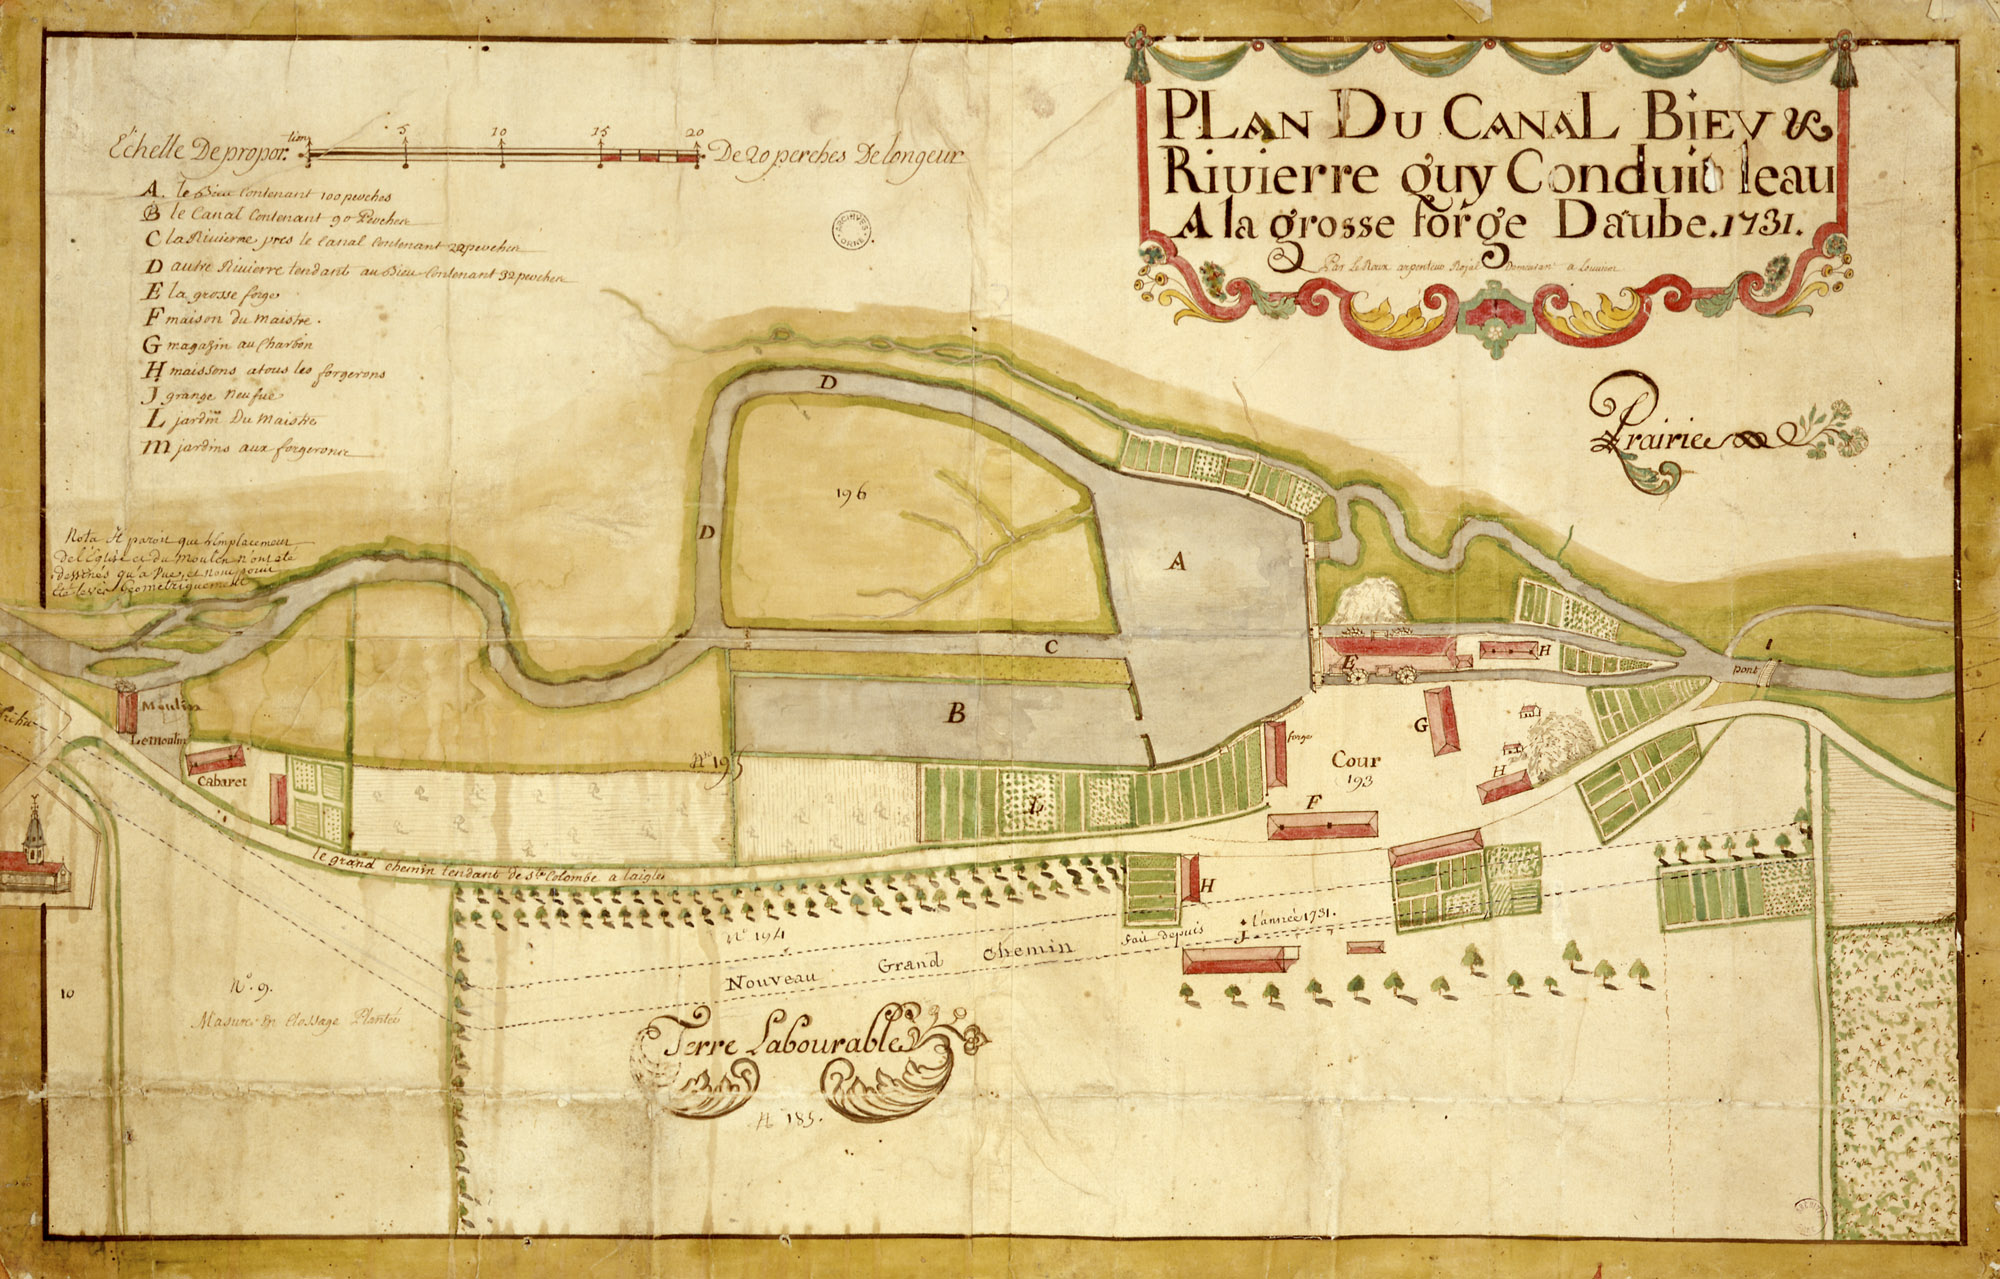 PLAN DU CANAL BIEV &
Rivierre quy Conduit leau
A la grosse forge Daube. 1731.
Par LeRoux arpenteur Royal
Echelle De propor tion
5 10 15 20
De 20 perches De longeur
A. le Bieu Contenant 100 perches
B le Canal Contenant 90 Perches
C la Rivierre pres le Canal Contenant 22 perches
D autre Rivierre tendant au Bieu Contenant 32 perches
E la grosse forge
F maison du maistre.
G magazin au Charbon
H maissons atous les forgerons
J grange neufue
L jardin Du Maistre
m jardins aux forgerons
ARCHIVES
ORNE
Prairie
Nota Il paroit que l'Emplacement
De l'Eglise et du Moulin n'ont eté
dessinés qu'a Vue, et non point
Eté levés Geometriquement
D
196
D
A
C
B
E
H
pont
1
G
forge
Cour
193
H
F
Moulin
Le moulin
Cabaret
No 195
L
le grand chemin tendant de Ste Colombe a laigle
H
No 194
Nouveau Grand Chemin fait depuis l'année 1731.
J
10
No. 9.
Masure en Clossage Plantée
Terre Labourable
No 185.